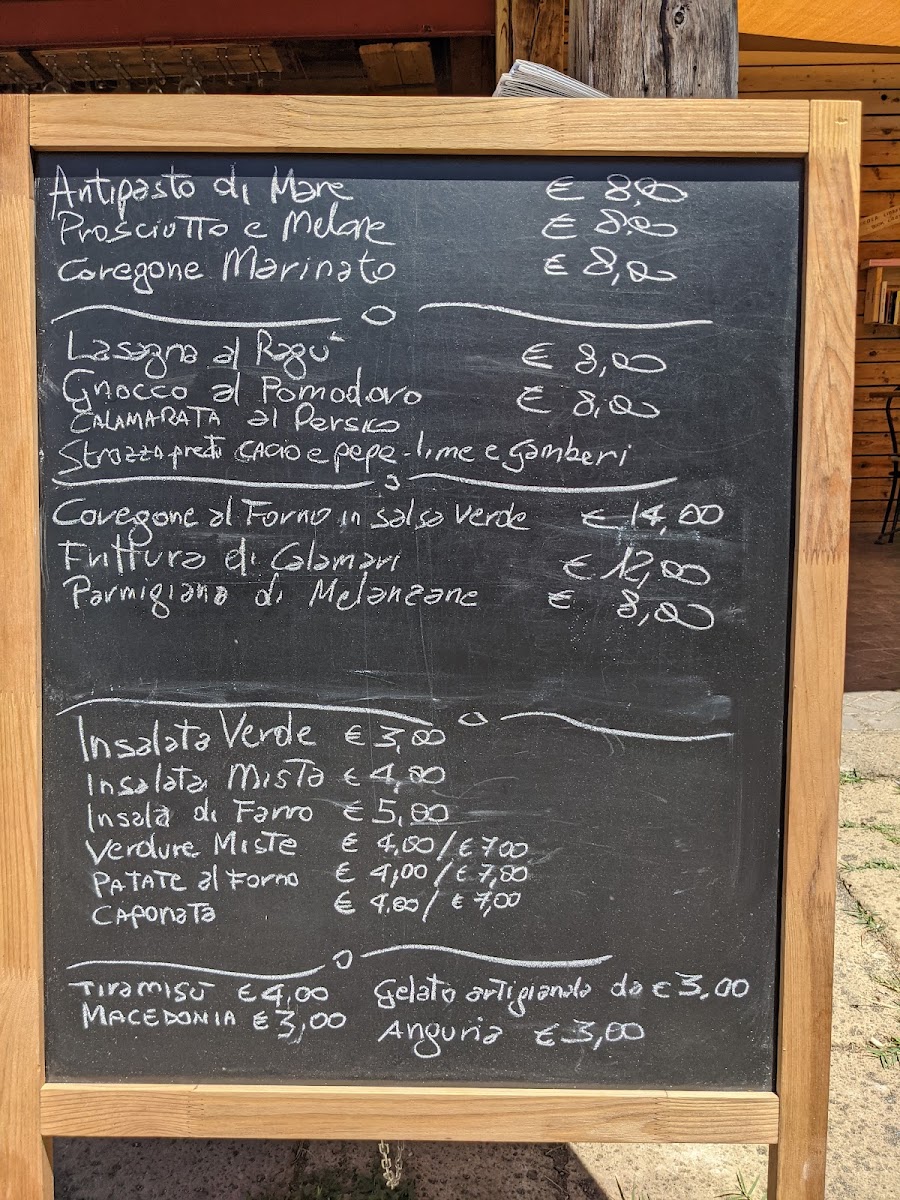 Antipasto di Mare € 8,00
Prosciutto e Melone € 8,00
Coregone Marinato € 8,00
Lasagna al Ragu' € 8,00
Gnocco al Pomodoro € 8,00
CALAMARATA al Persico
Strozzapreti CACIO e pepe - lime e gamberi
Coregone al Forno in salsa Verde € 14,00
Frittura di Calamari € 12,00
Parmigiana di Melanzane € 8,00
Insalata Verde € 3,00
Insalata Mista € 4,00
Insala di Farro € 5,00
Verdure Miste € 4,00 / € 7,00
PATATE al Forno € 4,00 / € 7,00
CAPonata € 4,00 / € 7,00
Tiramisù € 4,00 Gelato artigianale da € 3,00
MACEDONIA € 3,00 Anguria € 3,00